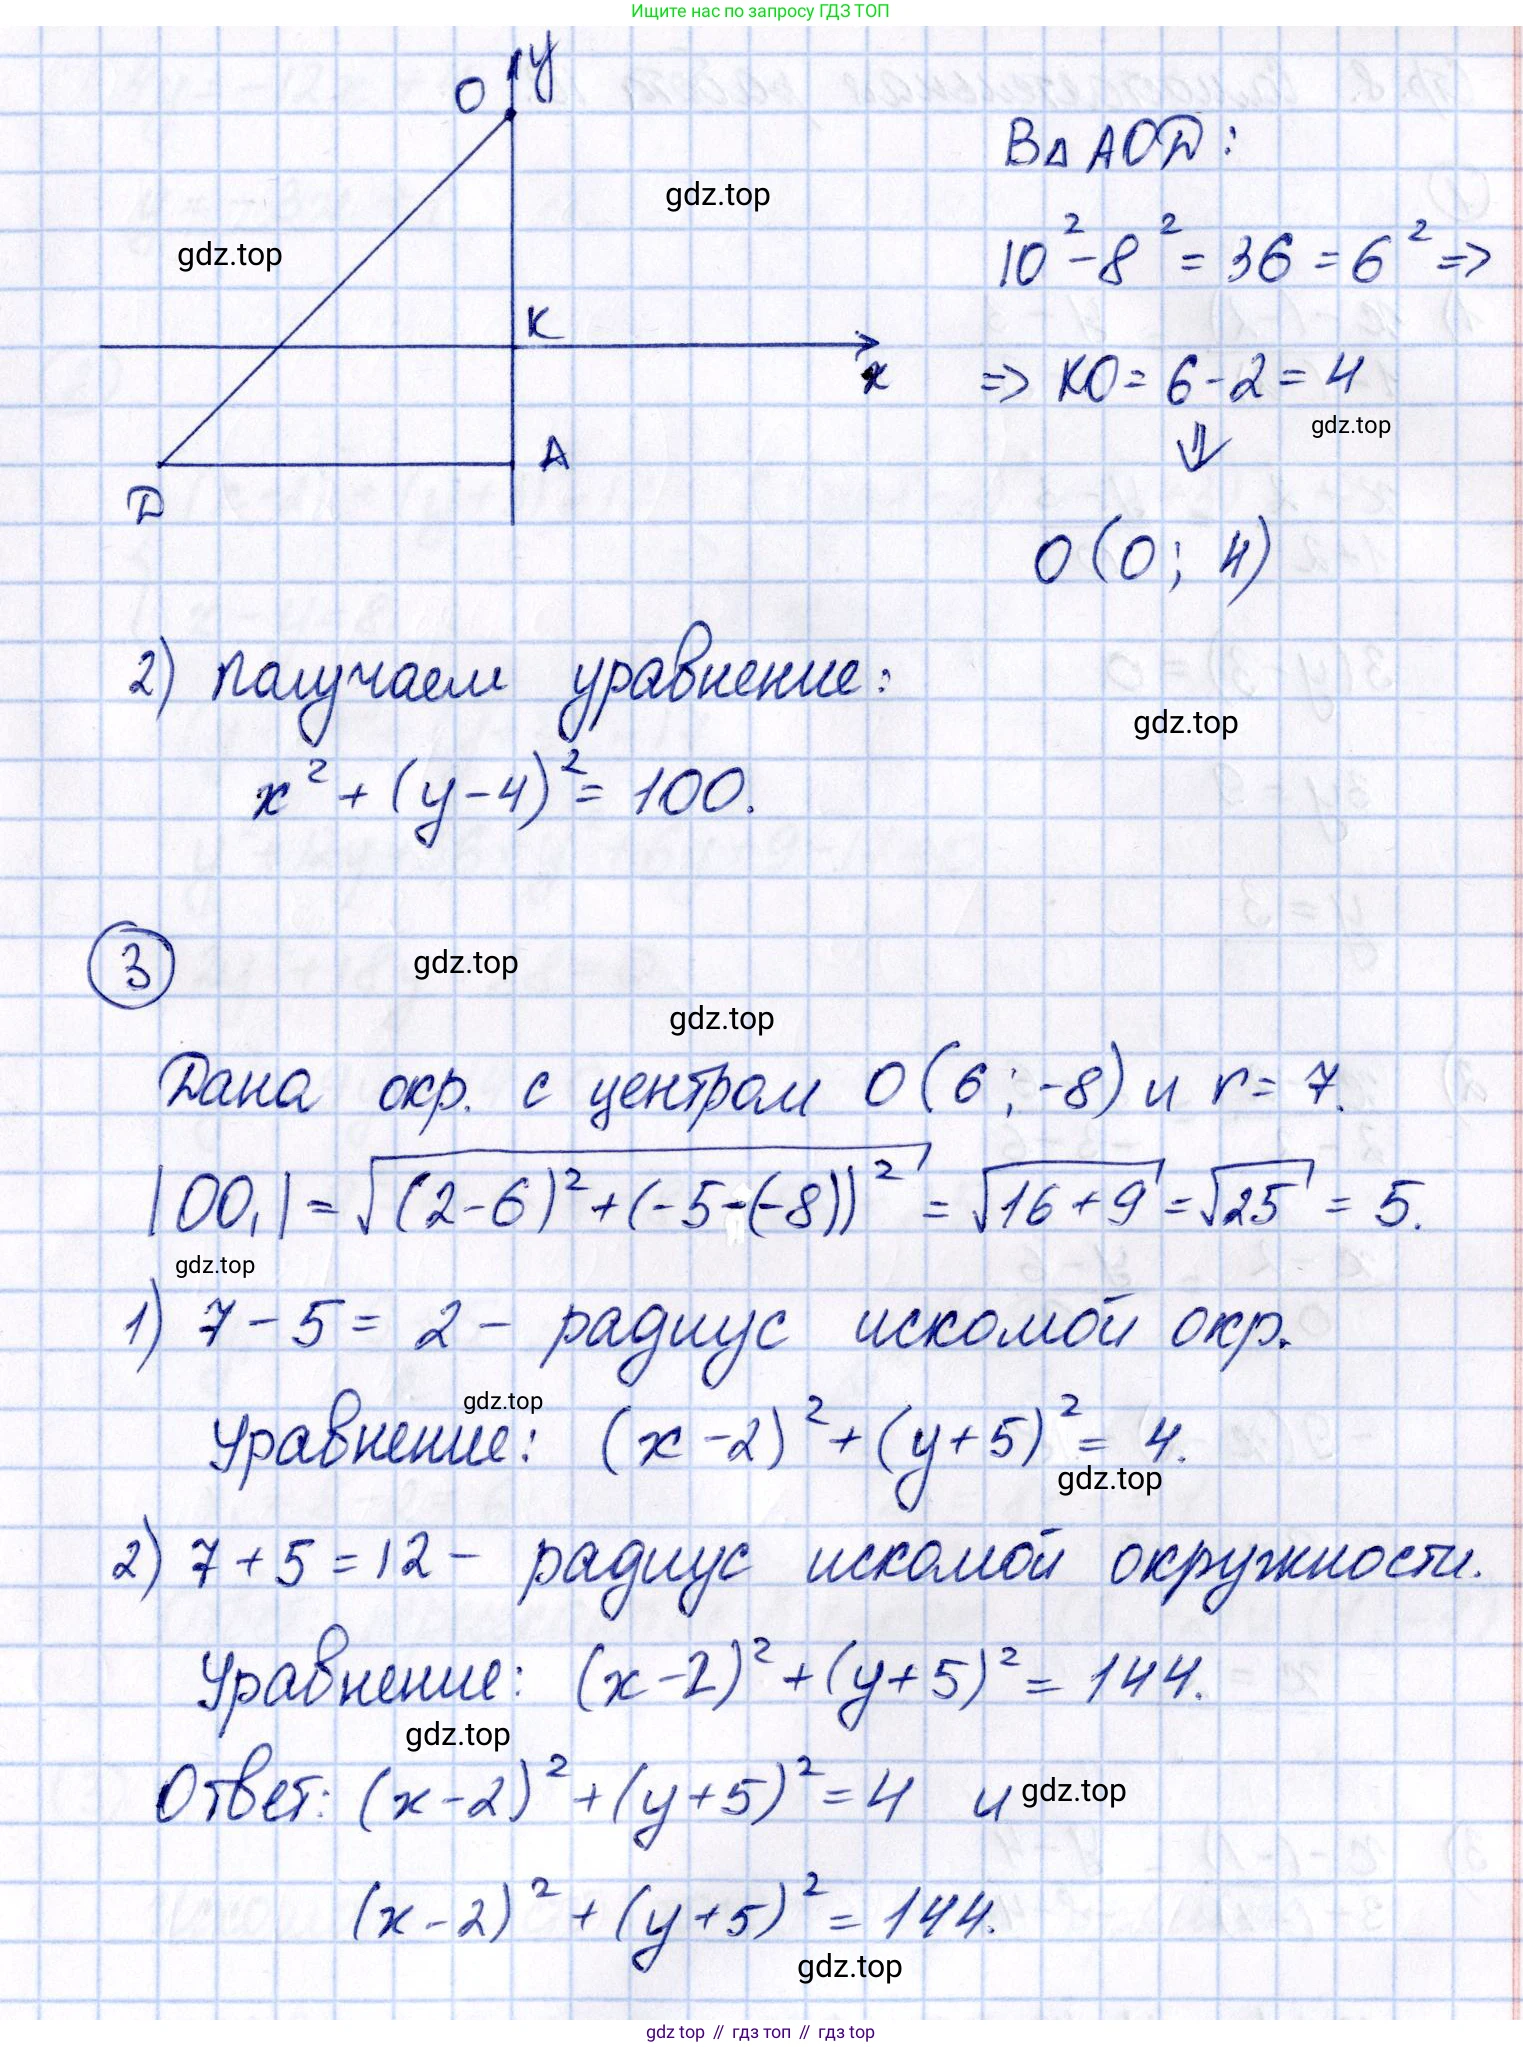 Ищите нас по запросу ГДЗ ТОП
O
y
В △ AOD:
gdz.top
10² - 8² = 36 = 6² =>
gdz.top
K
x
=> KO = 6 - 2 = 4
gdz.top
⇓
A
D
O (0; 4)
2) Получаем уравнение:
gdz.top
x² + (y-4)² = 100.
3
gdz.top
gdz.top
Дана окр. с центром O (6; -8) и r = 7.
|OO₁| = √((2-6)² + (-5-(-8))²) = √(16+9) = √25 = 5.
gdz.top
1) 7 - 5 = 2 - радиус искомой окр.
gdz.top
Уравнение: (x-2)² + (y+5)² = 4.
gdz.top
2) 7 + 5 = 12 - радиус искомой окружности.
Уравнение: (x-2)² + (y+5)² = 144.
gdz.top
Ответ: (x-2)² + (y+5)² = 4 и
gdz.top
(x-2)² + (y+5)² = 144.
gdz.top
gdz top // гдз топ // гдз top